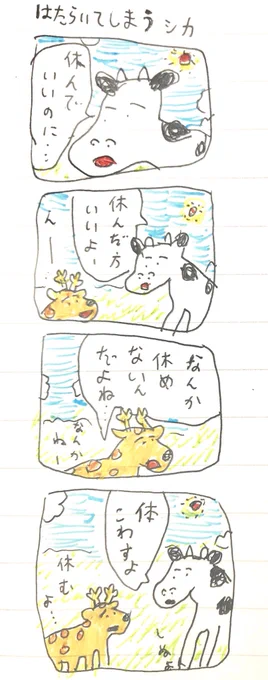 はたらいてしまうシカ
休んで
いいのに…
休んだ方
いいよー
んー
なんか
休め
ないん
だよね…
なんか
ねー
体
こわすよ
しぬよ
休むよ…